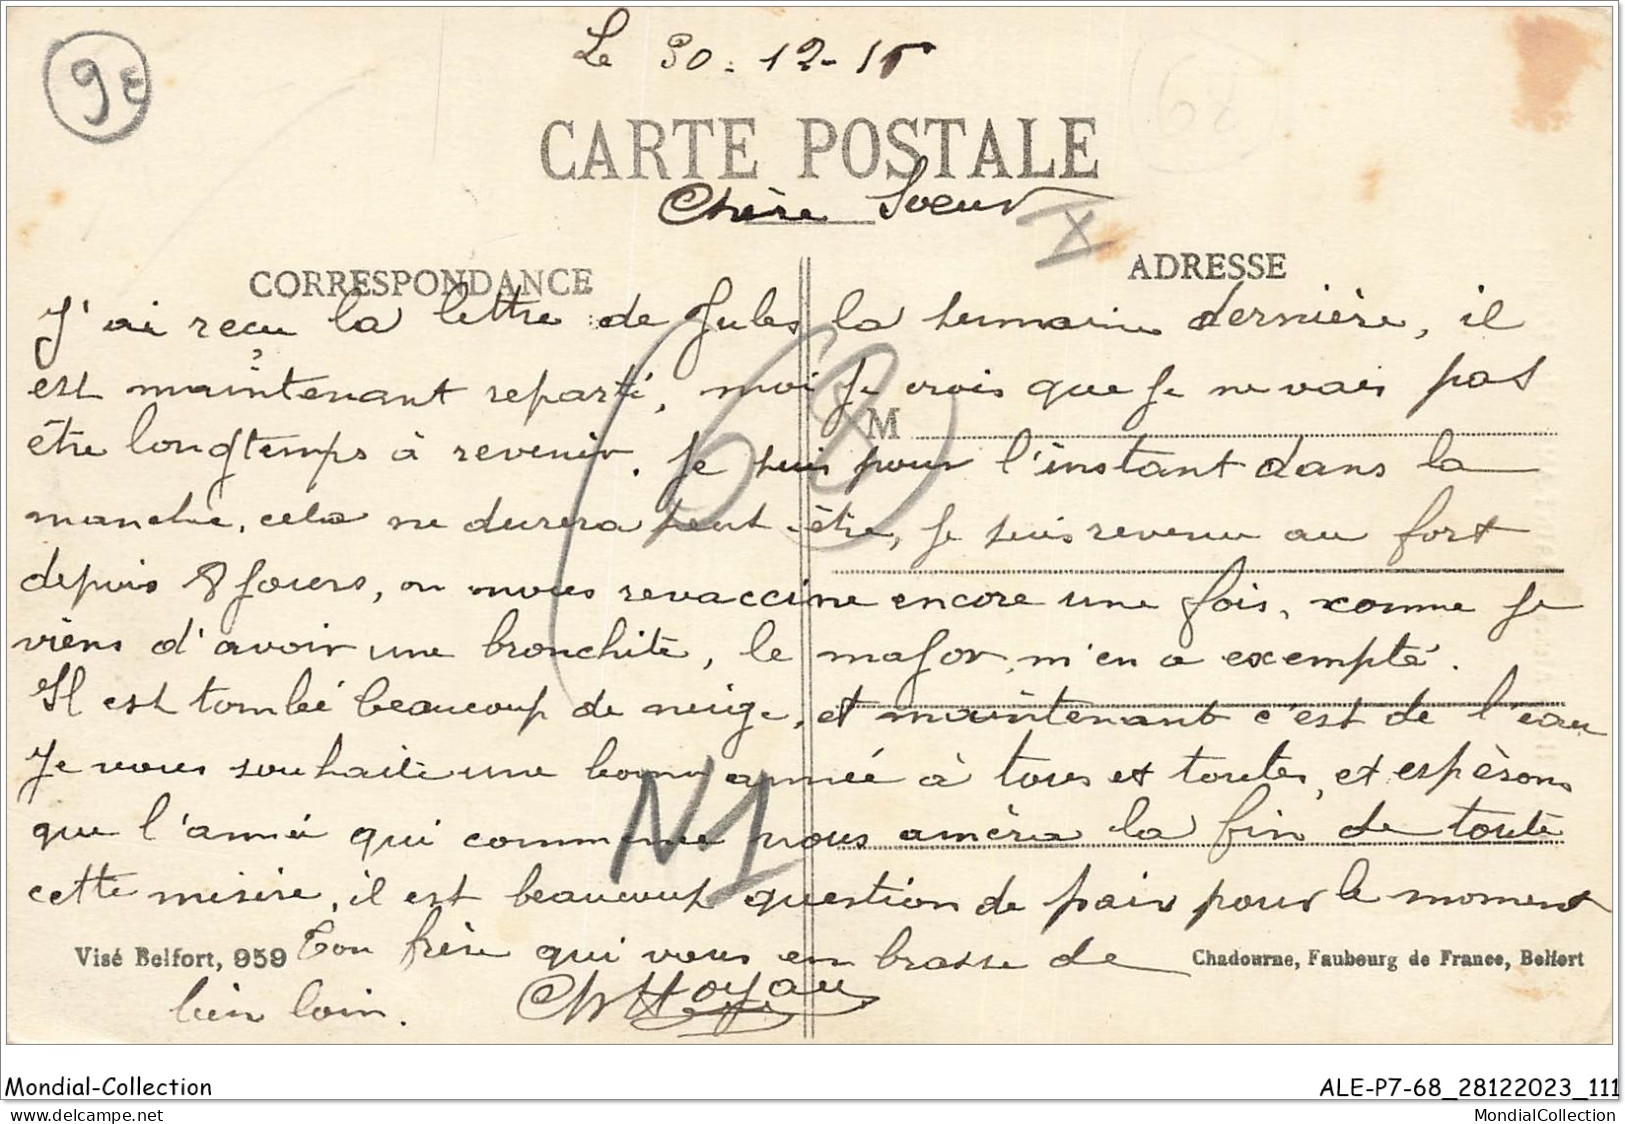 9 €
Le 30-12-15
CARTE POSTALE
Chère Soeur
X
CORRESPONDANCE
ADRESSE
J'ai reçu la lettre de Jules la semaine dernière, il
est maintenant reparti, moi je crois que je ne vais pas
M
être longtemps à revenir. Je suis pour l'instant dans la
manche, cela ne durera peut-être, je suis revenu au fort
depuis 8 jours, on nous revaccine encore une fois, comme je
viens d'avoir une bronchite, le major m'en a exempté.
Il est tombé beaucoup de neige, et maintenant c'est de l'eau
Je vous souhaite une bonne année à tous et toutes, et espèrons
que l'année qui commence nous amèra la fin de toute
N1
cette misère, il est beaucoup question de paix pour le moment
Visé Belfort, 959
Ton frère qui vous en brasse de
Chadourne, Faubourg de France, Belfort
bien loin.
68
Mondial-Collection
ALE-P7-68_28122023_111
delcampe.net
MondialCollection